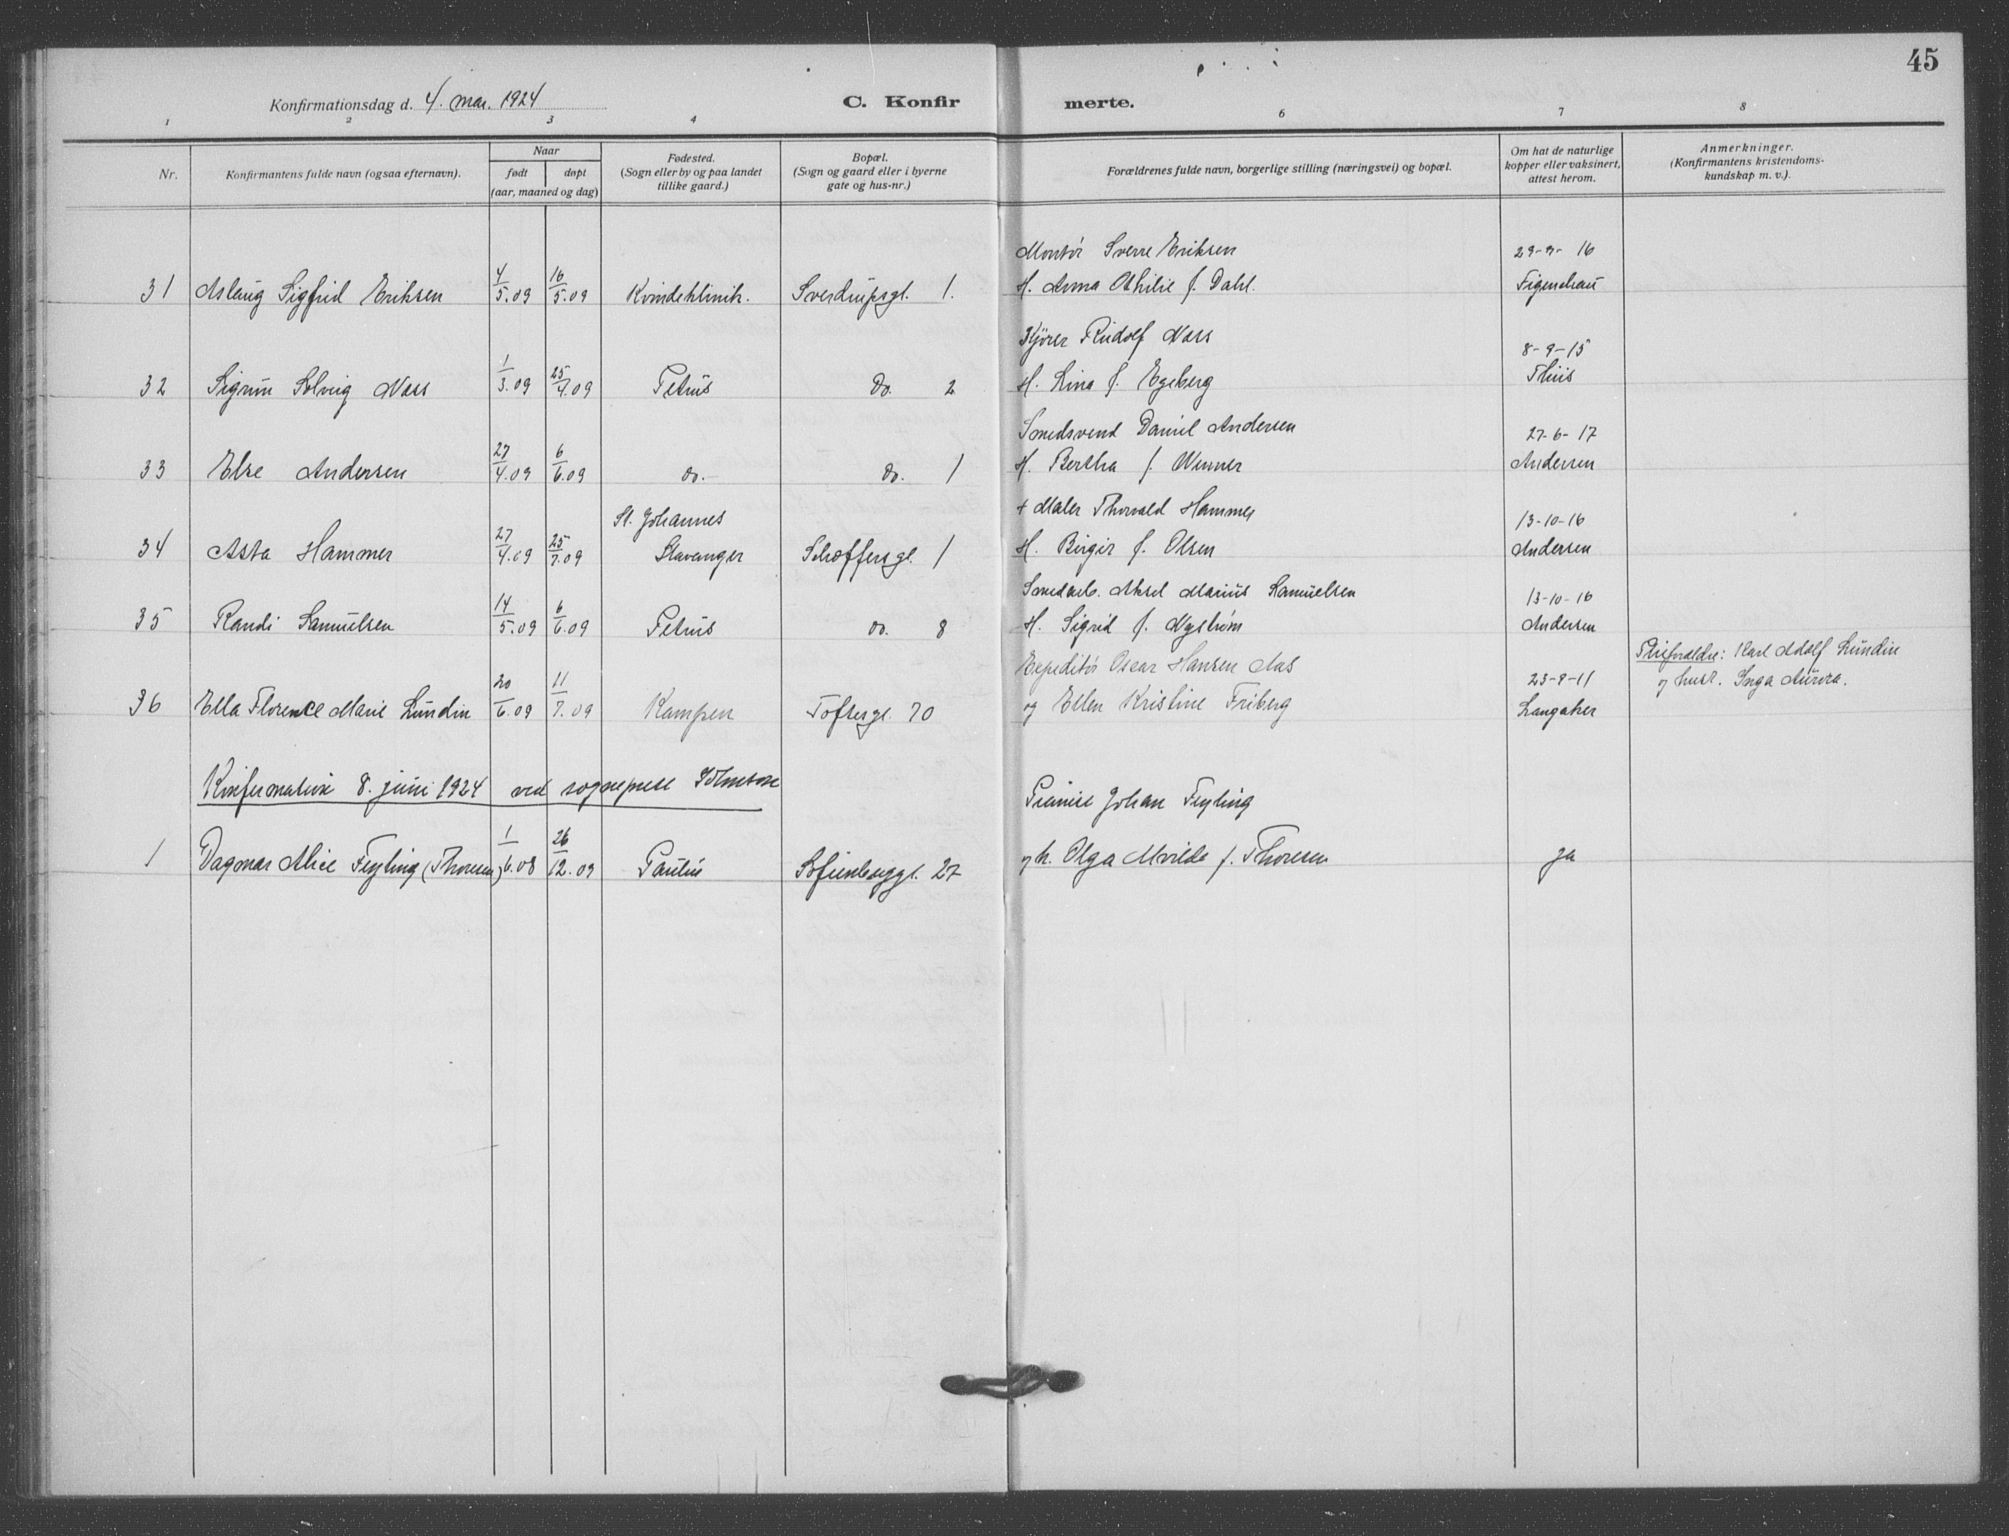 45
Konfirmationsdag d. 4. mai. 1924
C. Konfirmerte.
1 2 3 4 6 7 8
Nr.
Konfirmantens fulde navn (ogsaa efternavn).
Naar
født
døpt
(aar, maaned og dag)
Fødested.
(Sogn eller by og paa landet
tillike gaard.)
Bopæl.
(Sogn og gaard eller i byerne
gate og hus-nr.)
Forældrenes fulde navn, borgerlige stilling (næringsvei) og bopæl.
Om hat de naturlige
kopper eller vaksinert,
attest herom.
Anmerkninger.
(Konfirmantens kristendoms-
kundskap m. v.).
Montør Sverre Eriksen 29-9-16
31 Aslaug Sigfrid Eriksen 4/5.09 16/5.09 Kvindeklinik. Sverdrupsgt. 1. H. Anna Othilie f. Dahl. Figenschau
Kjører Rudolf Næss 8-9-15
32 Sigrun Solveig Næss 1/3.09 25/4.09 Petrus do. 2 H. Lina f. Egeberg Thiis
Smedsvend Daniel Andersen 27-6-17
33 Else Andersen 27/4.09 6/6.09 do. do. 1 H. Bertha f. Wenner Andersen
St. Johannes + Maler Thorvald Hammer 13-10-16
34 Asta Hammer 27/4.09 25/7.09 Stavanger Schoffersgt. 1 H. Birgit f. Olsen Andersen
Smedarb. Aksel Marius Samuelsen 13-10-16
35 Randi Samuelsen 14/5.09 6/6.09 Petrus do. 8 H. Sigrid f. Nystrøm Andersen
Expeditør Oscar Hansen Aas 23-9-11 Pleieforældre: Karl Adolf Lundin
36 Ella Florence Marie Lundin 20/6.09 11/7.09 Kampen Toftesgt. 70 og Ellen Kristine Friberg Langaker og hust. Inga Aurora.
Konfirmation 8. juni 1924 ved sogneprest
Pianist Johan Feyling
1 Dagmar Alice Feyling (Thoresen) 1/6.08 26/12.09 Paulus Sofienberggt. 27 og h. Olga Mvilda f. Thoresen ja